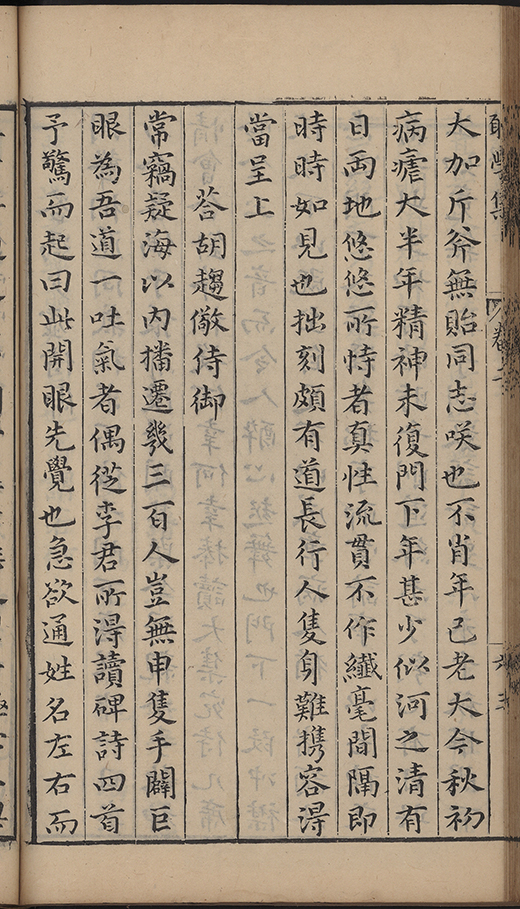 學集 卷二
大加斤斧無貽同志咲也不肖年已老大今秋初
病瘧大半年精神未復門下年甚少似河之清有
日両地悠悠所恃者真性流貫不作纎毫間隔即
時時如見也拙刻頗有道長行人隻身難携容得
當呈上
荅胡趨儆侍御
常竊疑海以内播遷幾三百人豈無申隻手闢巨
眼為吾道一吐氣者偶從李君所得讀碑詩四首
予驚而起曰此開眼先覺也急欲通姓名左右而